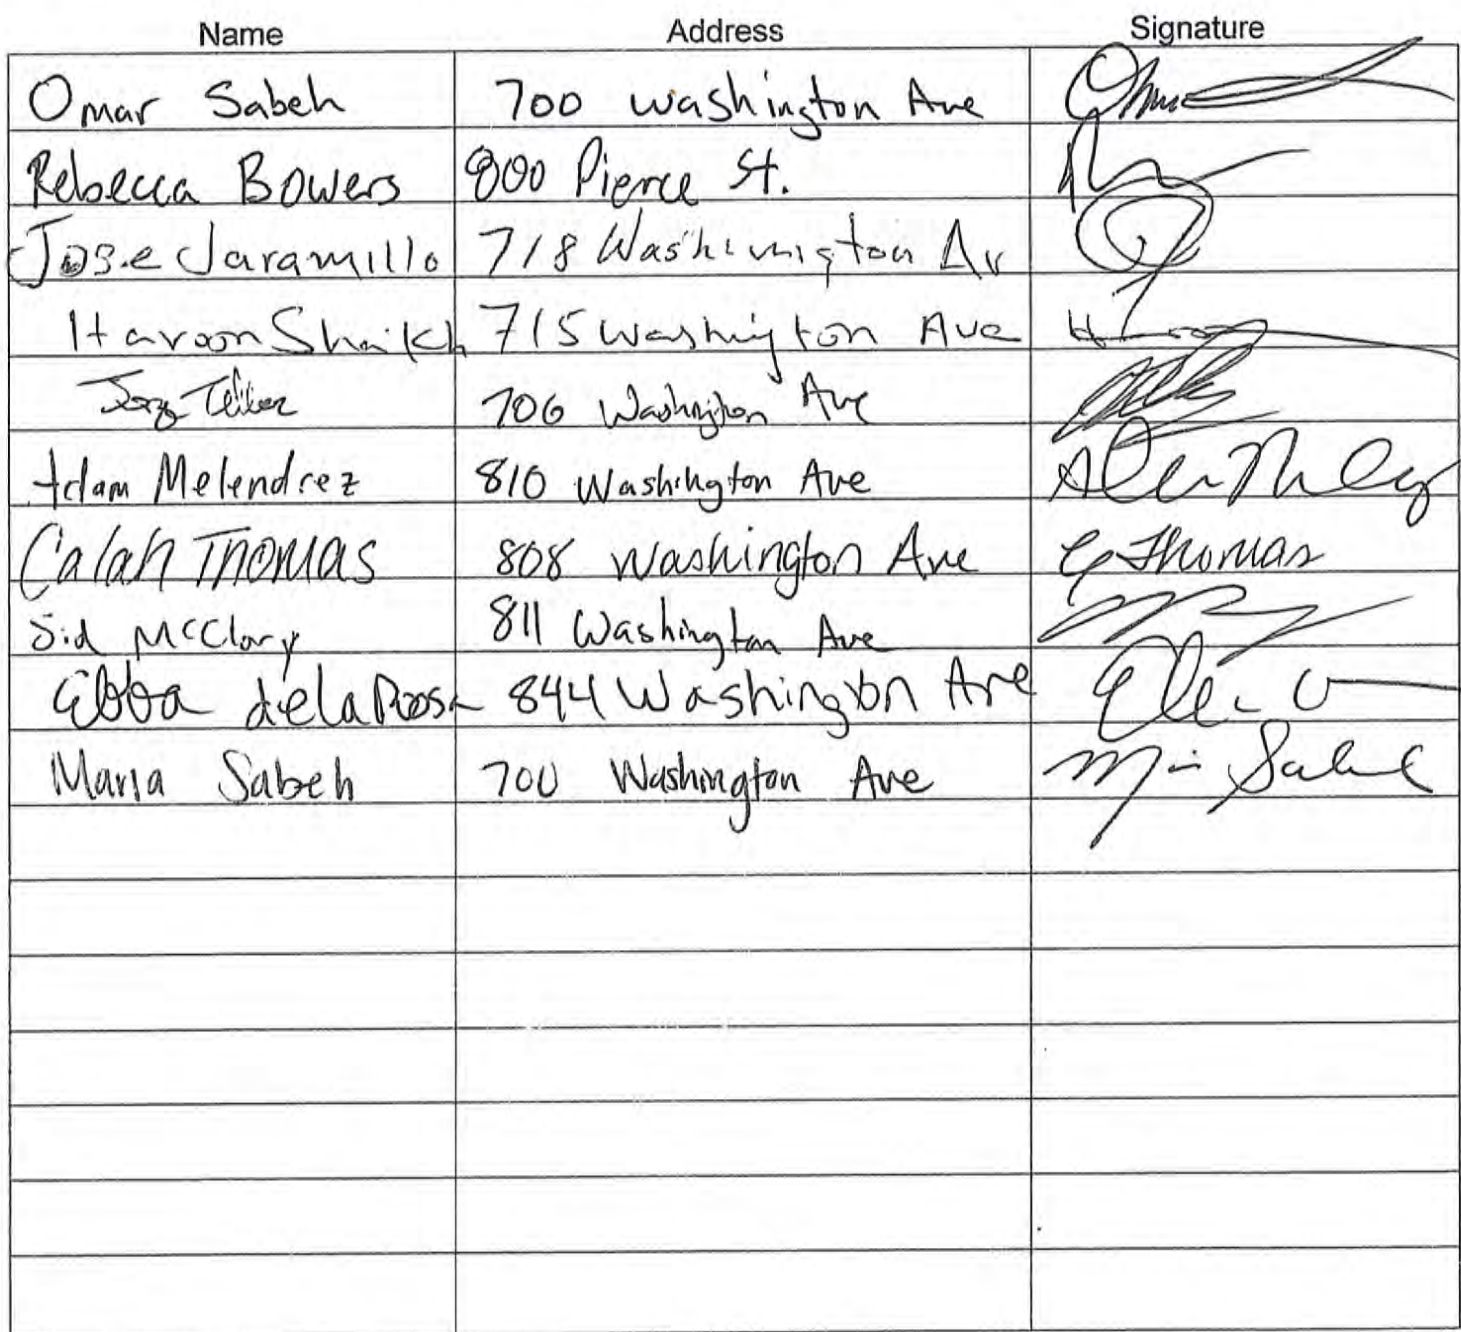 Name Address Signature
Omar Sabeh 700 Washington Ave
Rebecca Bowers 800 Pierce St.
Jose Jaramillo 718 Washimigton Av
Haroon Shaikh 715 Washington Ave
706 Washington Ave
Adam Melendrez 810 Washington Ave
Calah Thomas 808 Washington Ave C Thomas
Sid McClory 811 Washington Ave
Ebba delaRosa 844 Washington Ave
Maria Sabeh 700 Washington Ave